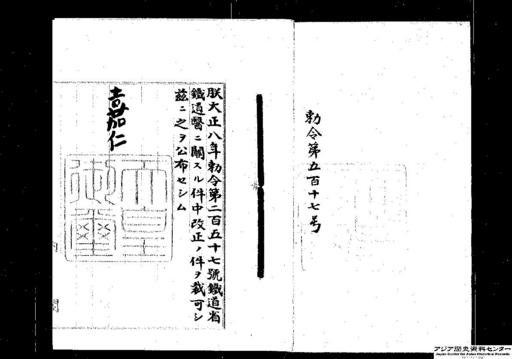 勅令第五百十七号
朕大正八年勅令第二百五十七號鐵道省
鐵道醫ニ關スル件中改正ノ件ヲ裁可シ
茲ニ之ヲ公布セシム
嘉仁
天皇
御璽
アジア歴史資料センター
Japan Center for Asian Historical Records